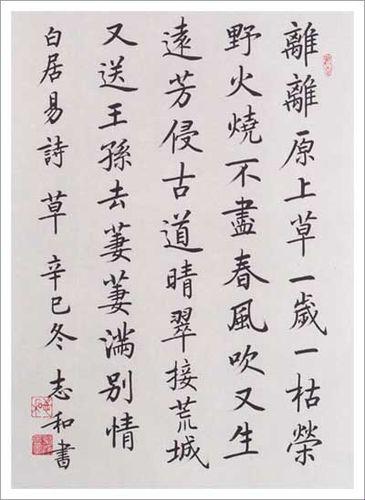 離離原上草一歲一枯榮
野火燒不盡春風吹又生
遠芳侵古道晴翠接荒城
又送王孫去萋萋滿別情
白居易詩草辛巳冬志和書